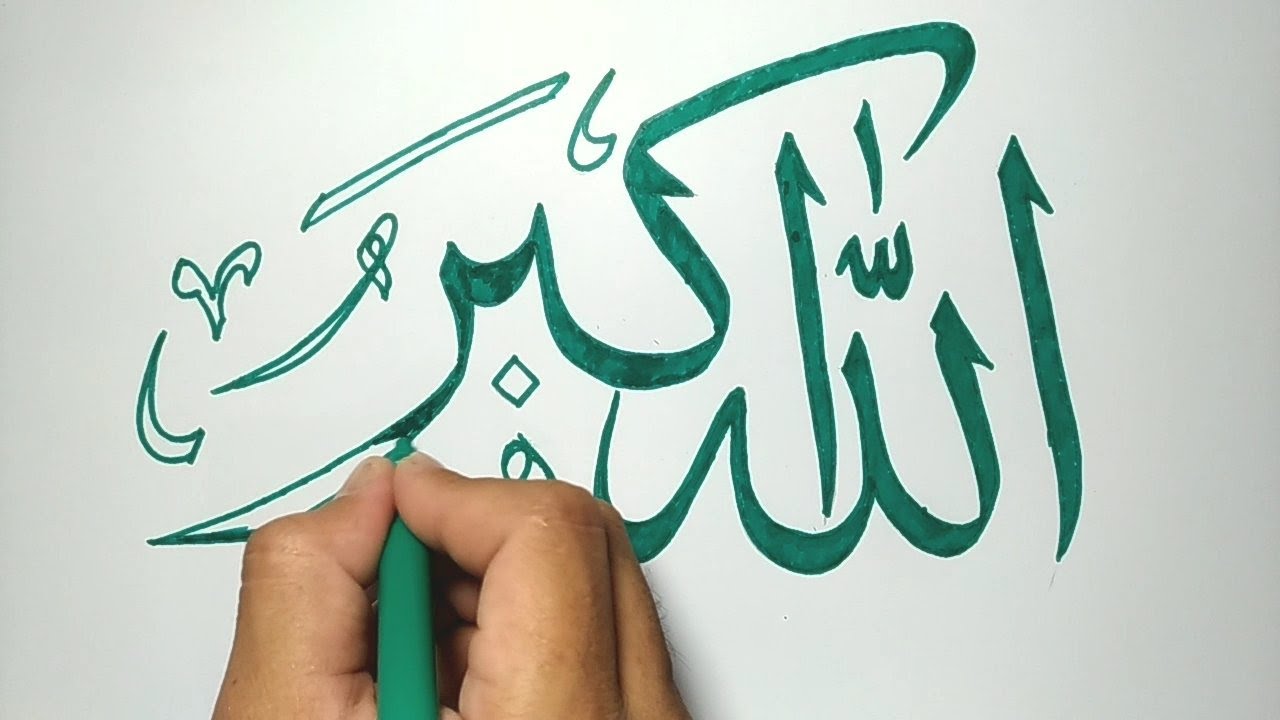 اللّٰه أَكْبَرُ